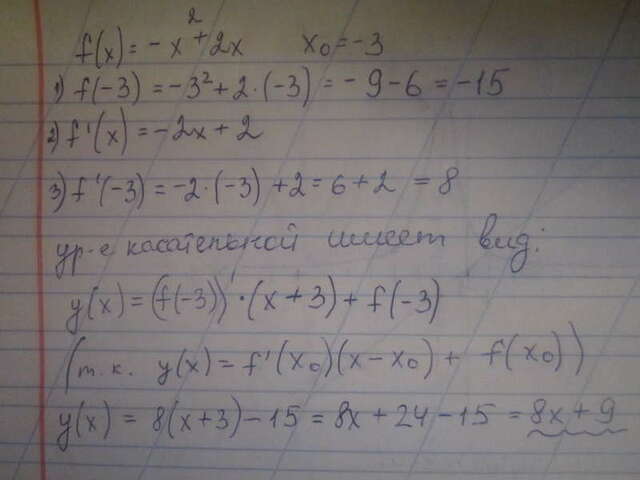 f(x) = -x² + 2x x₀ = -3
1) f(-3) = -3² + 2·(-3) = -9-6 = -15
2) f'(x) = -2x + 2
3) f'(-3) = -2·(-3) + 2 = 6 + 2 = 8
ур-е касательной имеет вид:
y(x) = (f(-3))'·(x+3) + f(-3)
(т.к. y(x) = f'(x₀)(x-x₀) + f(x₀))
y(x) = 8(x+3)-15 = 8x+24-15 = 8x+9